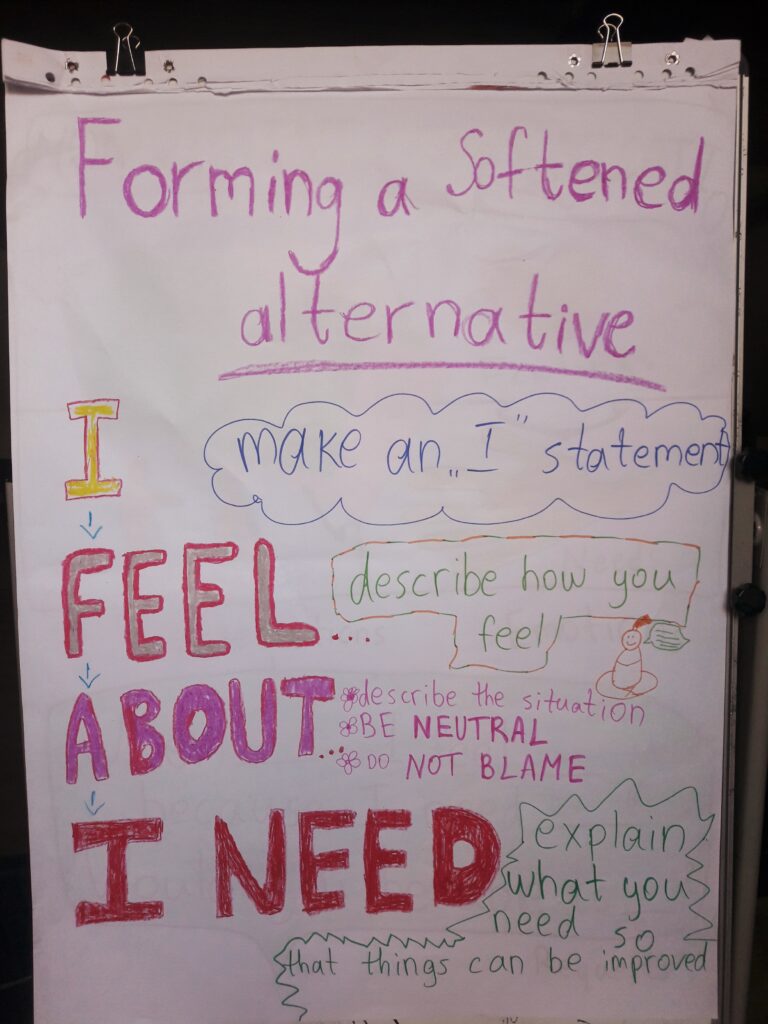 Forming a Softened
alternative
I
make an „I" statement
FEEL...
describe how you
feel
ABOUT...
describe the situation
BE NEUTRAL
DO NOT BLAME
I NEED
explain
what you
need so
that things can be improved